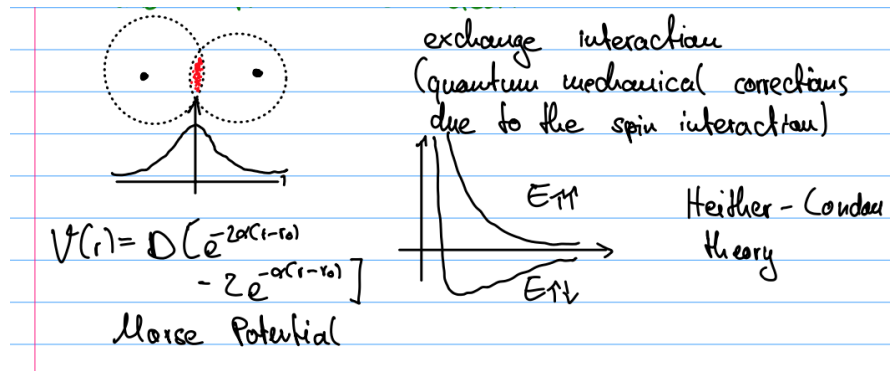 exchange interaction
(quantum mechanical corrections
due to the spin interaction)
E↑↑
E↑↓
Heither-Condau
theory
V(r)= D[e^-2α(r-r₀)
- 2e^-α(r-r₀)]
Morse Potential